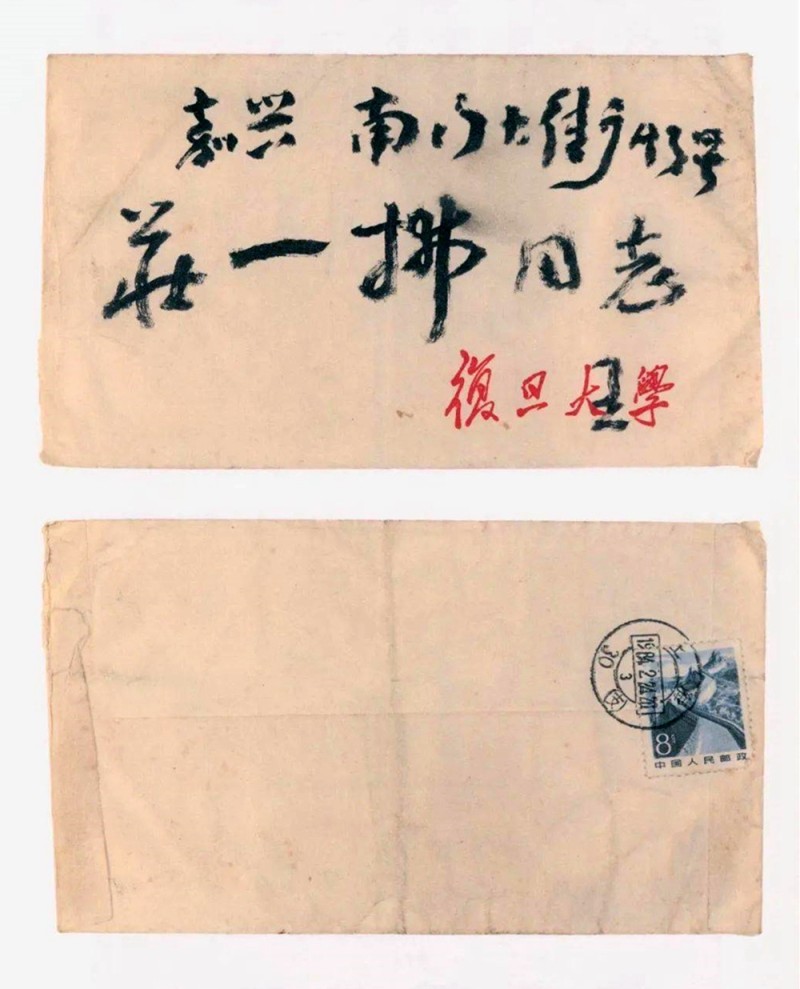 嘉兴 南门大街
莊一拂同志
復旦大學
王
上海
1984.2.24.20
3
30
8分
中国人民邮政